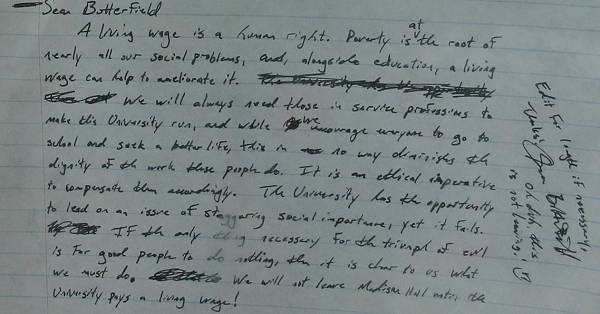 Sean Butterfield
A living wage is a human right. Poverty is at the root of
nearly all our social problems, and, alongside education, a living
wage can help to ameliorate it.
We will always need those in service professions to
make this University run, and while we encourage everyone to go to
school and seek a better life, this in no way diminishes the
dignity of the work those people do. It is an ethical imperative
to compensate them accordingly. The University has the opportunity
to lead on an issue of staggering social importance, yet it fails.
If the only thing necessary for the triumph of evil
is for good people to do nothing, then it is clear to us what
we must do. We will not leave Madison Hall until the
University pays a living wage!
Edit for length if necessary.
Thanks! Sean Butterfield
is not leaving!